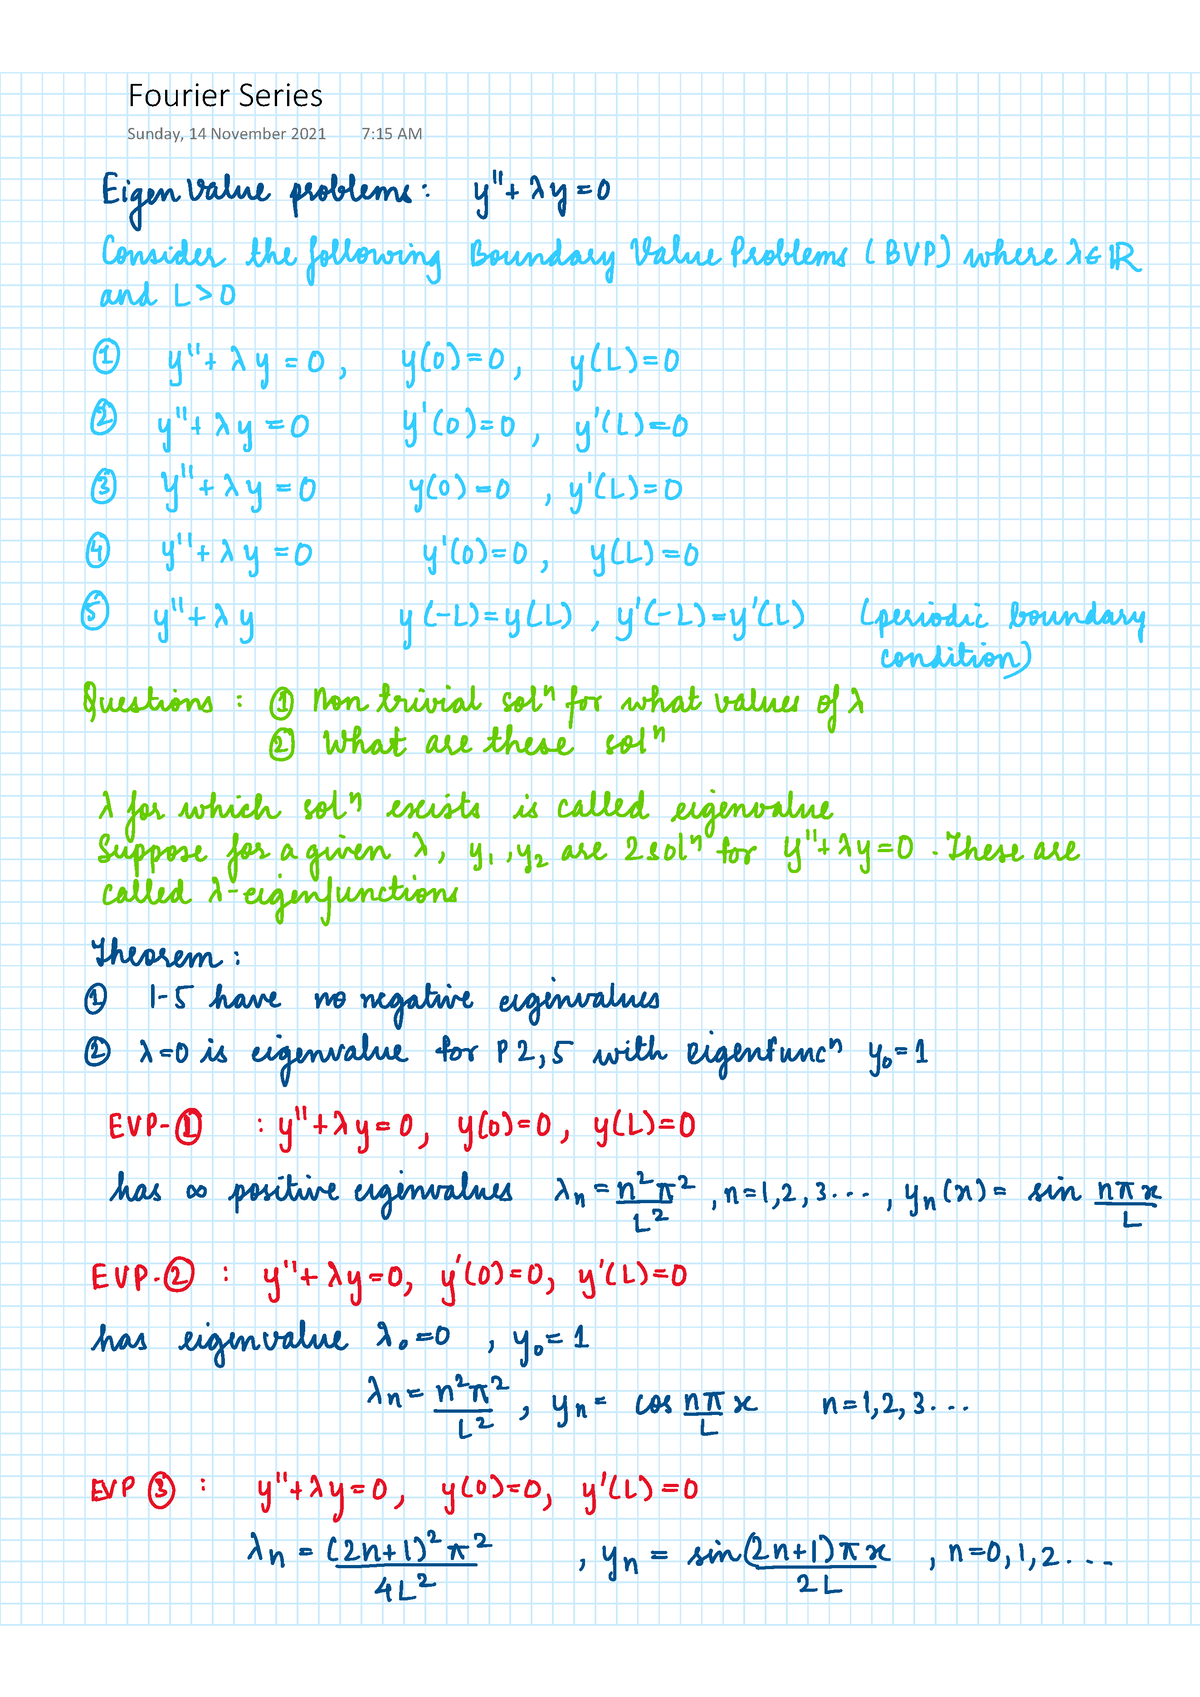 Fourier Series
Sunday, 14 November 2021 7:15 AM
Eigen Value problems: y'' + λy = 0
Consider the following Boundary Value Problems (BVP) where λ∈ℝ
and L>0
① y'' + λy = 0, y(0)=0, y(L)=0
② y'' + λy = 0 y'(0)=0, y'(L)=0
③ y'' + λy = 0 y(0)=0, y'(L)=0
④ y'' + λy = 0 y'(0)=0, y(L)=0
⑤ y'' + λy y(-L)=y(L), y'(-L)=y'(L) (periodic boundary
condition)
Questions: ① Non trivial solⁿ for what values of λ
② What are these solⁿ
λ for which solⁿ exists is called eigenvalue
Suppose for a given λ, y₁, y₂ are 2 solⁿ for y'' + λy = 0. These are
called λ-eigenfunctions
Theorem:
① 1-5 have no negative eigenvalues
② λ=0 is eigenvalue for P 2,5 with eigenfuncⁿ y₀=1
EVP-① : y'' + λy = 0, y(0)=0, y(L)=0
has ∞ positive eigenvalues λₙ = n²π²/L², n=1,2,3..., yₙ(x) = sin nπx/L
EVP-② : y'' + λy = 0, y'(0)=0, y'(L)=0
has eigenvalue λ₀=0, y₀=1
λₙ = n²π²/L², yₙ = cos nπ/L x n=1,2,3...
EVP ③ : y'' + λy = 0, y(0)=0, y'(L)=0
λₙ = (2n+1)²π²/4L², yₙ = sin (2n+1)πx/2L, n=0,1,2...